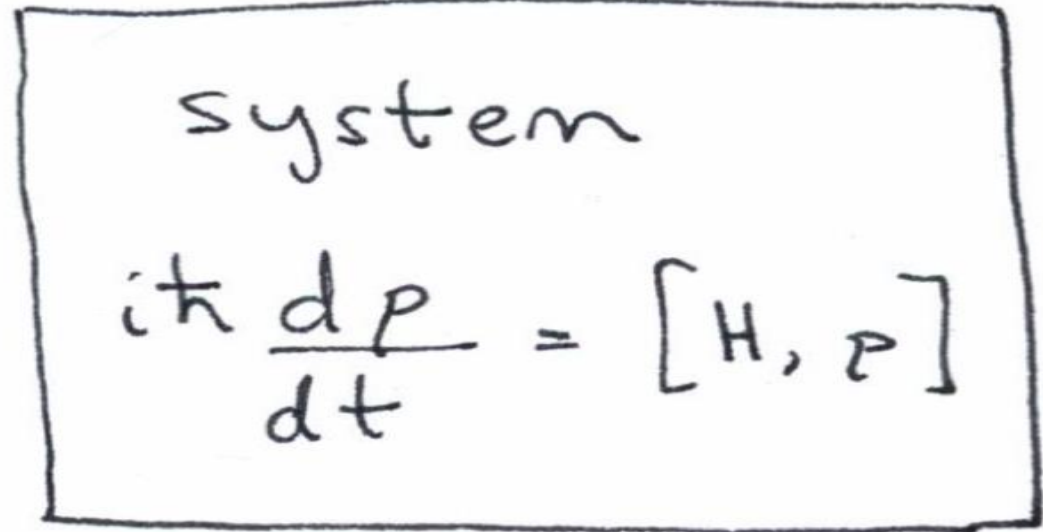 system
iħ dρ/dt = [H, ρ]